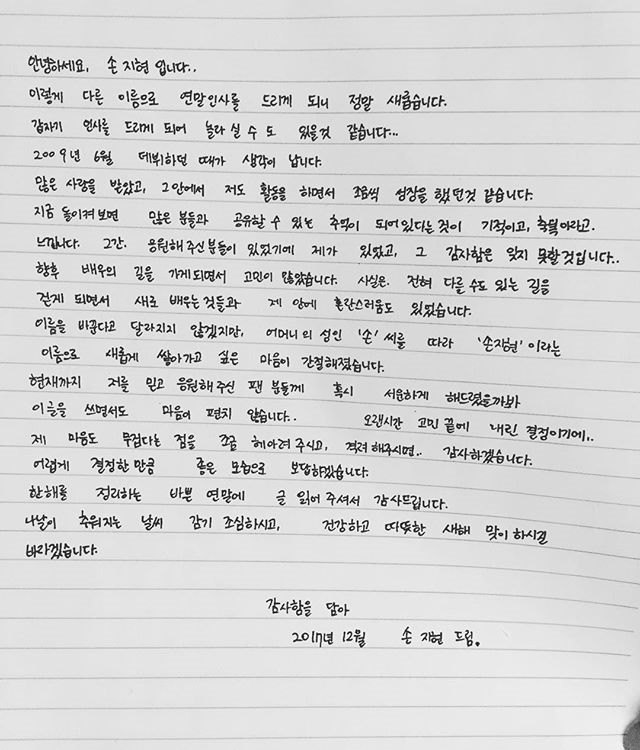 안녕하세요, 손지현 입니다..
이렇게 다른 이름으로 연말인사를 드리게 되니 정말 새롭습니다.
갑자기 인사를 드리게 되어 놀라 실 수 도 있을것 같습니다...
2009년 6월 데뷔하던 때가 생각이 납니다.
많은 사랑을 받았고, 그안에서 저도 활동을 하면서 조금씩 성장을 했던것 같습니다.
지금 돌이켜보면 많은 분들과 공유할 수 있는 추억이 되어있다는것이 기적이고, 축복이라고.
느낍니다. 그간. 응원해 주신분들이 있었기에 제가 있었고, 그 감사함은 잊지 못할것입니다..
향후 배우의 길을 가게되면서 고민이 많았습니다. 사실은. 전혀 다를 수도 있는 길을
걷게 되면서 새로 배우는것들과 제 안에 혼란스러움도 있었습니다.
이름을 바꾼다고 달라지지 않겠지만, 어머니의 성인 '손' 씨를 따라 '손지현' 이라는
이름으로 새롭게 쌓아가고 싶은 마음이 간절해졌습니다.
현재까지 저를 믿고 응원해 주신 팬 분들께 혹시 서운하게 해드렸을까봐
이글을 쓰면서도 마음이 편치 않습니다.. 오랜시간 고민 끝에 내린 결정이기에..
제 마음도 무겁다는 점을 조금 헤아려 주시고, 격려 해주시면.. 감사하겠습니다.
어렵게 결정한 만큼 좋은 모습으로 보답하겠습니다.
한해를 정리하는 바쁜 연말에 글 읽어 주셔서 감사드립니다.
나날이 추워지는 날씨 감기 조심하시고, 건강하고 따뜻한 새해 맞이 하시길
바라겠습니다.
감사함을 담아
2017년 12월 손 지현 드림.